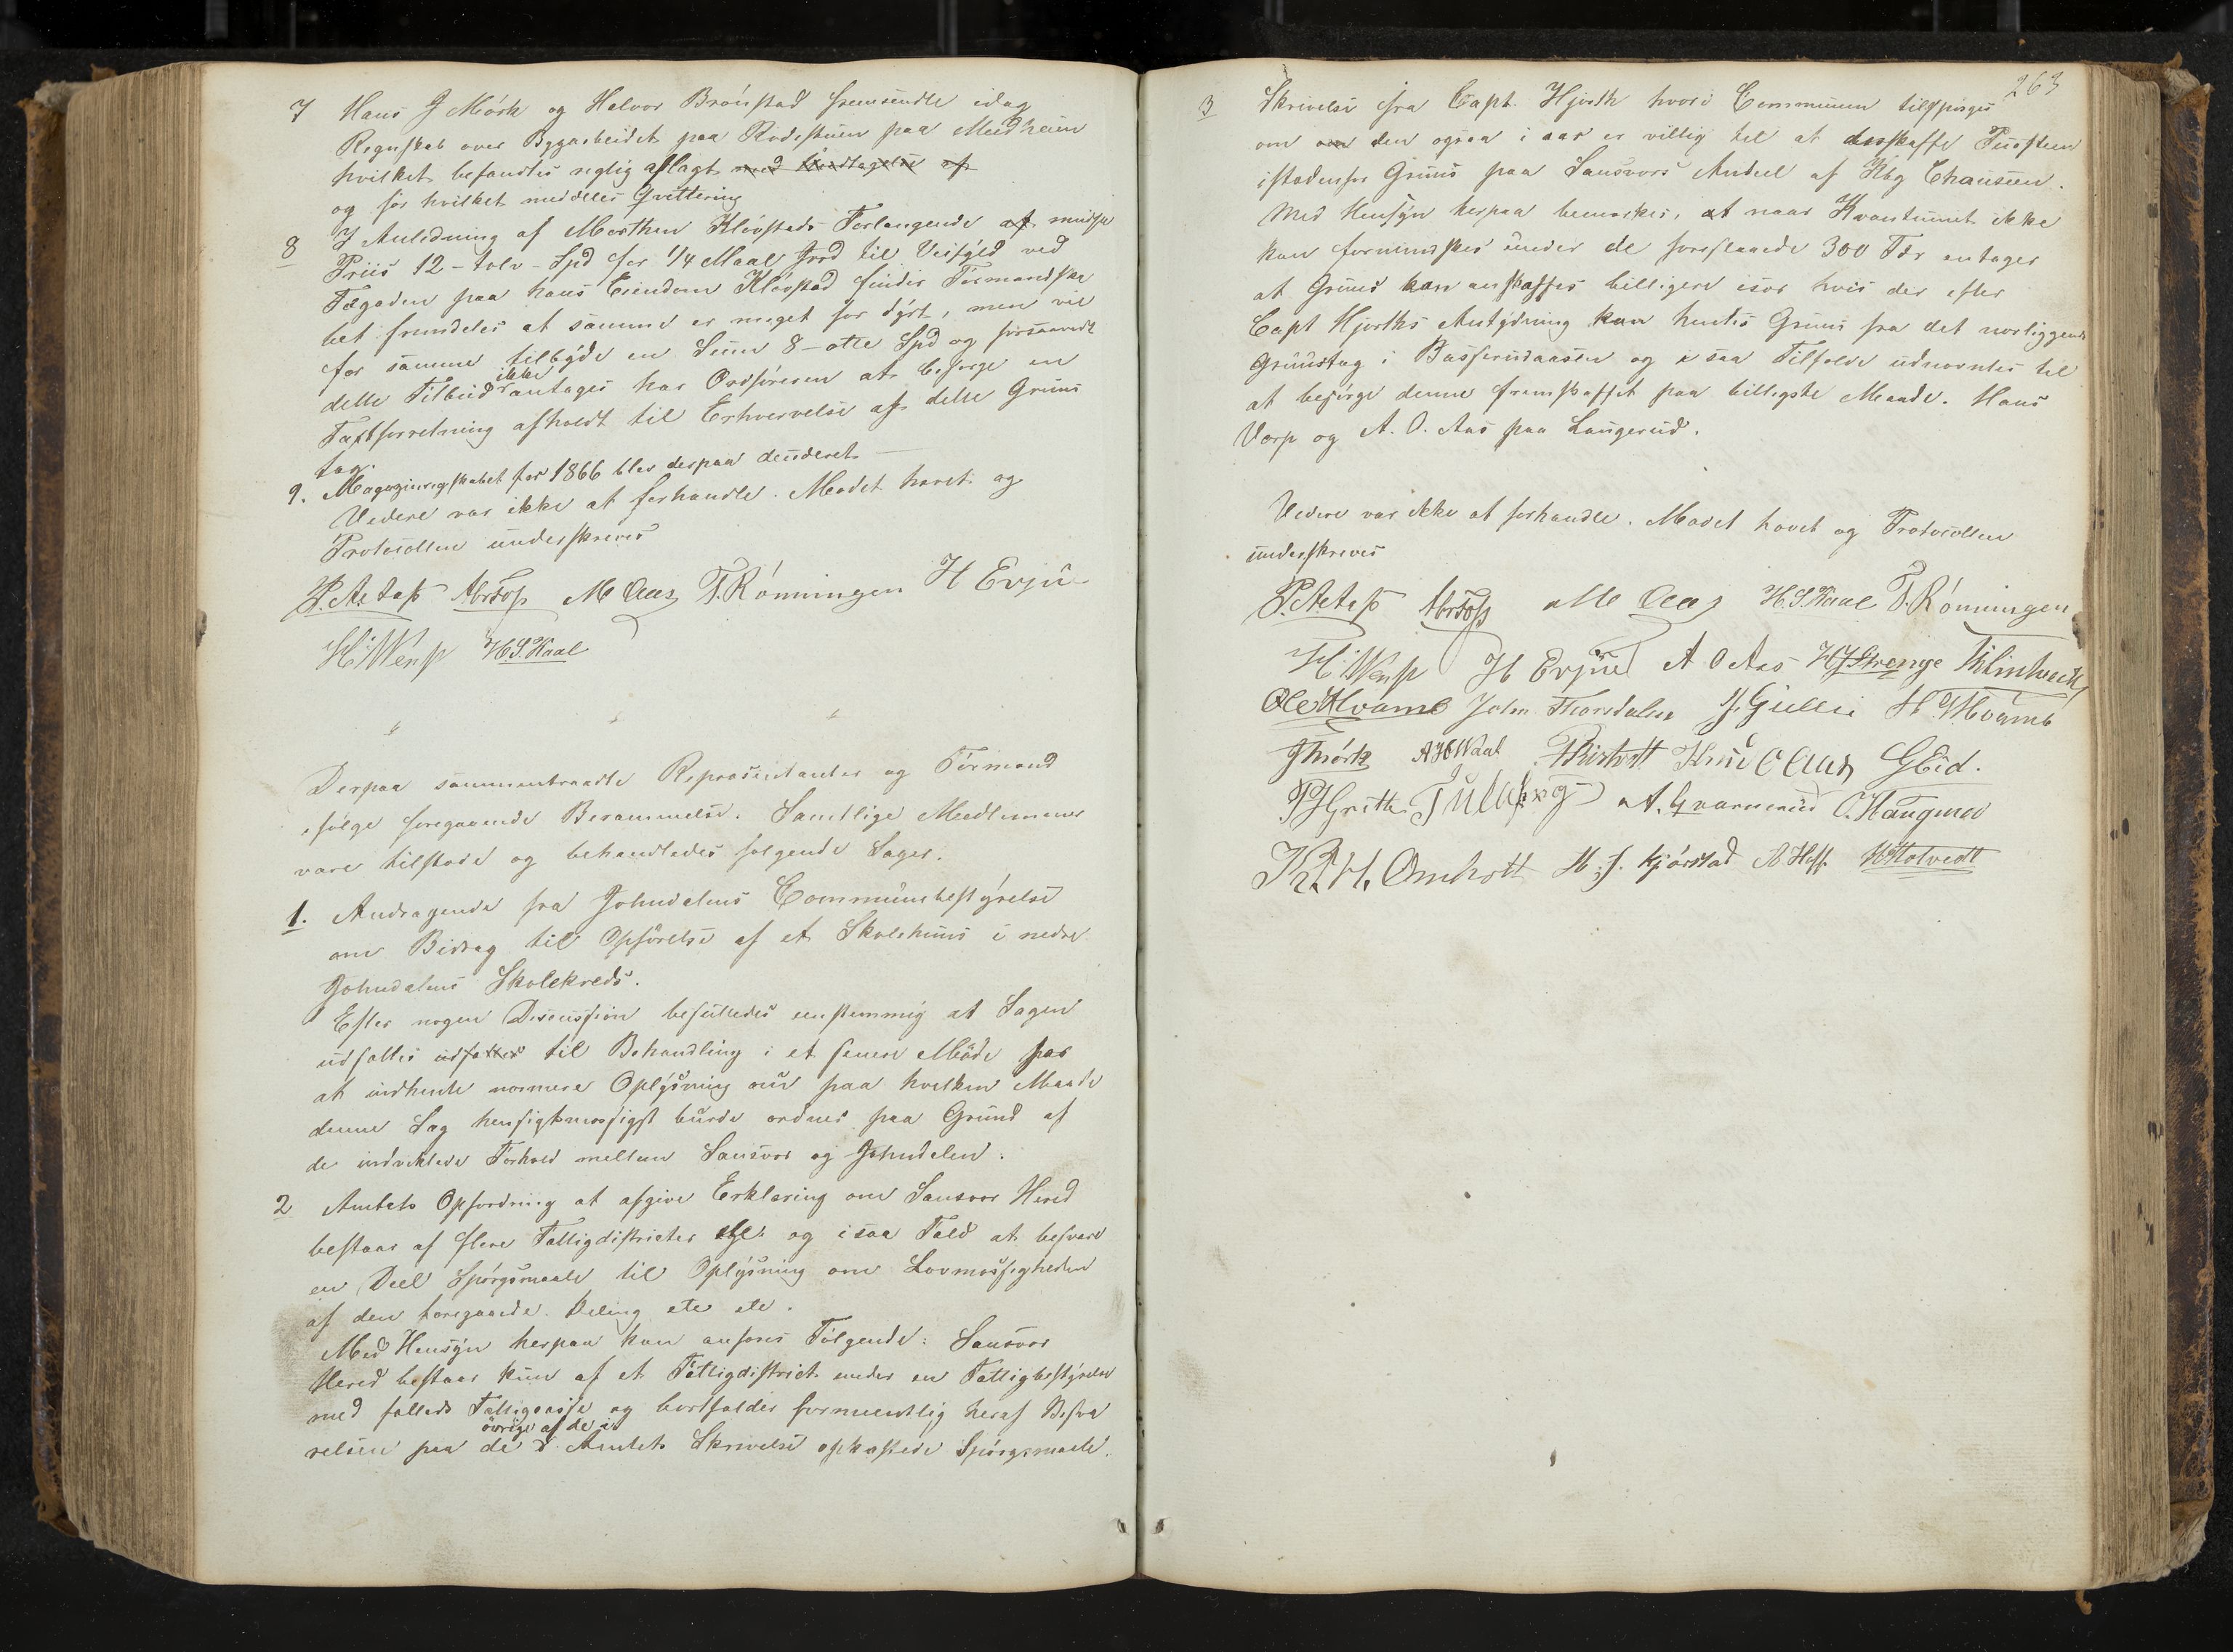 7 Hans J Mörk og Halvor Brönstad fremsendte idag
Regnskab over Bygarbeidet paa Rodestuen paa Medheim
hvilket befandtes rigtig aflagt med Undtagelse af
og for hvilket meddeles Qvittering
8 I Anledning af Morthen Klövstads Forlangende af
Priis 12 - tolv - Spd for 1/4 Maal Jord til Veifyld ved
Tægaden paa hans Eiendom Klövstad finder Formandska
bet fremdeles at samme er meget for dyrt, men vil
for samme tilbyde en Sum 8 - otte Spd og forsaavidt
dette Tilbud ikke antages har Ordföreren at besörge en
Taxtforretning afholdt til Erhvervelse af dette Gruus
tag.
9. Magazinregnskabet for 1866 blev derpaa decideret
Videre var ikke at forhandle. Mödet hævet og
Protocollen underskreves
P. A. Taß M Aas T. Rönningen H Evju
H. Wenß H S. Kaal
Derpaa sammentraadte Repræsentanter og Formænd
ifölge foregaaende Berammelse. Samtlige Medlemmer
vare tilstede og behandledes fölgende Sager.
1. Andragende fra Johndalens Communebestyrelse
om Bidrag til Opförelse af et Skolehuus i nedre
Johndalens Skolekreds.
Efter nogen Discussion besluttedes eenstemmig at Sagen
udsattes udsattes til Behandling i et senere Möde for
at indhente nærmere Oplysning om paa hvilken Maade
denne Sag hensigtsmæssigst burde ordnes paa Grund af
de indviklede Forhold mellem Sandsvær og Johndalen.
2 Amtets Opfordring at afgive Erklæring om Sandsvær Hered
bestaar af flere Fattigdistricter og isaa Fald at besvare
en Deel Spörgsmaale til Oplysning om Lovmæssigheden
af den foregaaede Deling etc etc.
Med Hensyn herpaa kan anföres Fölgende: Sandsvær
Hered bestaar kun af et Fattigdistrict under en Fattigbestyrelse
med fælleds Fattigcasse og bortfalder formeentlig heraf Besva
relsen paa de övrige af de i Amtets Skrivelse opkastede Spörgsmaale.
263
3 Skrivelse fra Capt. Hjorth hvori Communen tilspörges
om om den ogsaa i aar er villig til at anskaffe Pussteen
istedenfor Gruus paa Sandsværs Andeel af Kbg Chauseen.
Med Hensyn herpaa bemærkes, at naar Kvantumet ikke
kan formindskes under de foreslaaede 300 Tdr antages
at Gruus kan anskaffes billigere især hvis der efter
Capt Hjorths Antydning kan hentes Gruus fra det nærliggende
Gruustag i Basserudaasen og i saa Tilfælde udnævntes til
at besörge denne fremskaffet paa billigste Maade. Hans
Vorp og A. O. Aas paa Langerud.
Videre var ikke at forhandle. Mödet hævet og Protocollen
underskreves
P. A. Taß M Aas H. S. Kaal T. Rönningen
H. Wenß H Evju A O Aas
Ole Hvamb John Thorsdalen J. Gullie H. Hvamb
J Mörk Knud O Aas G Eid.
P H Gritte A. Qvarnerud O. Haugmo
K. H. Omholt H. J. Kjörstad A Hoff H Holvedt